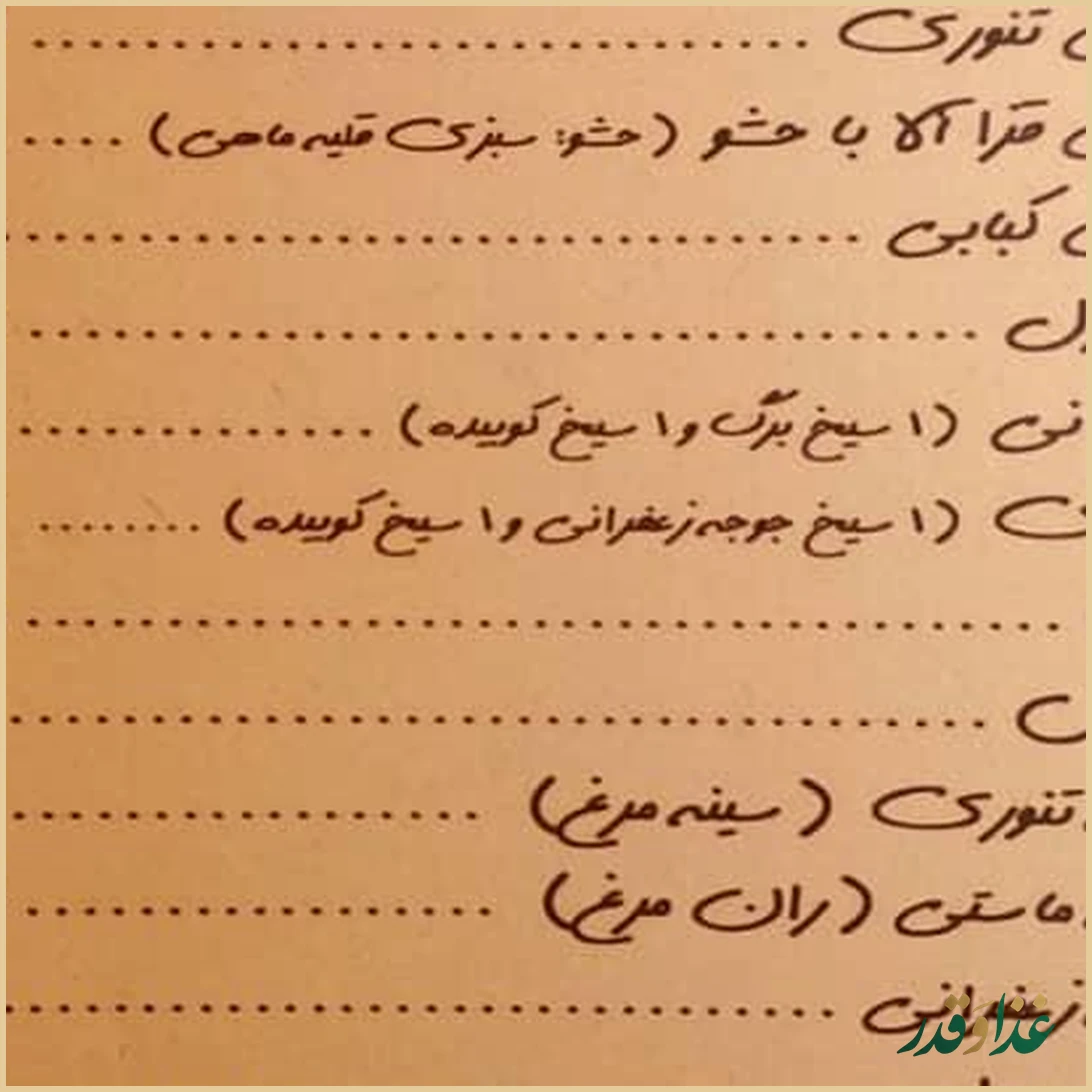 تنوری ..............................
قزل آلا با حشو (حشو: سبزی قلیه ماهی) ....
کبابی ..............................
..............................
(۱ سیخ برگ و ۱ سیخ کوبیده) .............
(۱ سیخ جوجه زعفرانی و ۱ سیخ کوبیده) ........
..............................
..............................
تنوری (سینه مرغ) .................
ماستی (ران مرغ) .................
زعفرانی ..............................
غذا و قدر